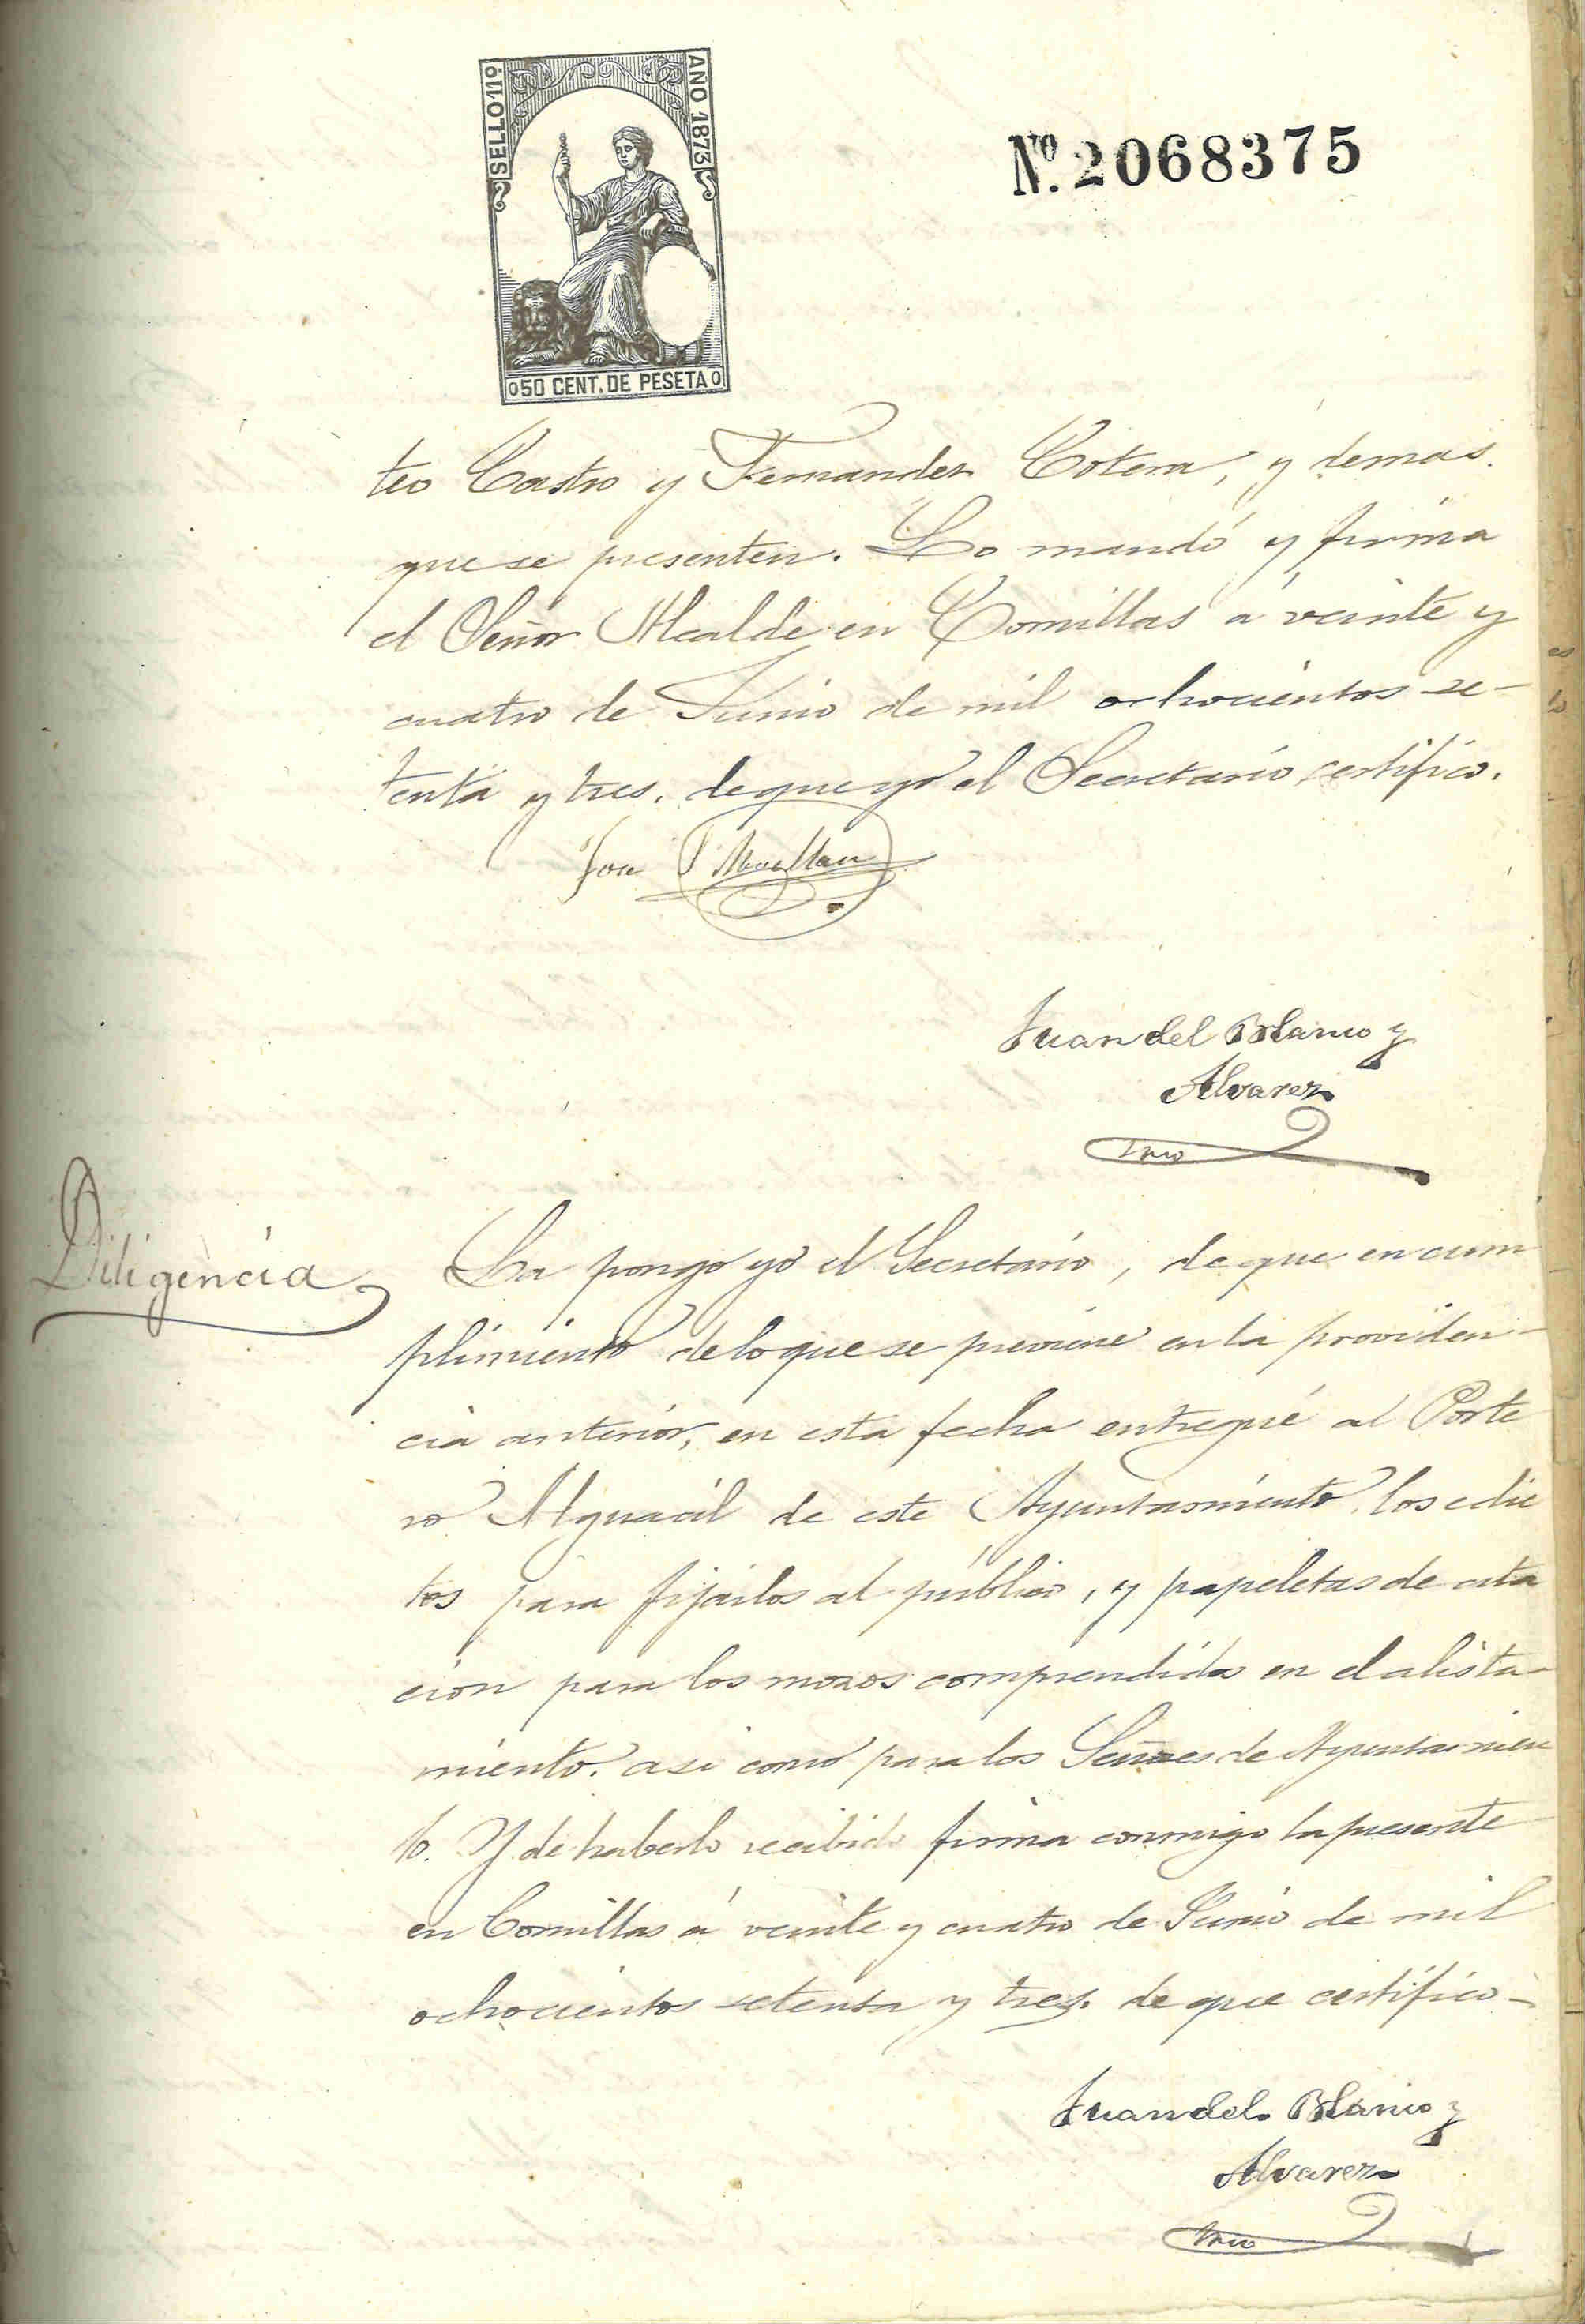 SELLO 11º
AÑO 1873
50 CENT. DE PESETA
Nº. 2068375
teo Castro y Fernandez Cotera, y demas
que se presenten. Lo mandó y firma
el Señor Alcalde en Comillas á veinte y
cuatro de Junio de mil ochocientos se-
tenta y tres. de que yo el Secretario, certifico.
Juan del Blanco y
Alvarez
Srio
Diligencia
La pongo yo el Secretario, de que en cum
plimiento de lo que se previene en la providen-
cia anterior, en esta fecha entregué al Porte
ro Alguacil de este Ayuntamiento, los edic
tos para fijarlos al público, y papeletas de cita
cion para los mozos comprendidos en el alista-
miento. asi como para los Señores de Ayuntamien
to. Y de haberlo recibido firma conmigo la presente
en Comillas á veinte y cuatro de Junio de mil
ochocientos setenta y tres. de que certifico-
Juan del Blanco y
Alvarez
Srio